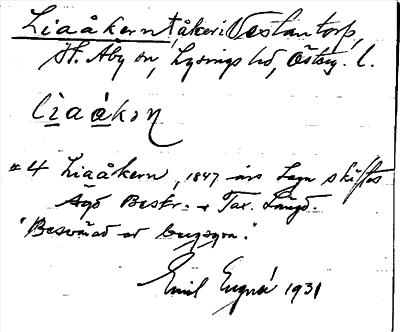 Liaåkern, åker i Västantorp,
St. Åby sn, Lysings hd, Östg. l.
liaåkon
#4 Liaåkern, 1847 års Laga skiftes
Ägo Beskr. + Tax. Längd.
"Besvärad av bergsyra."
Emil 1931